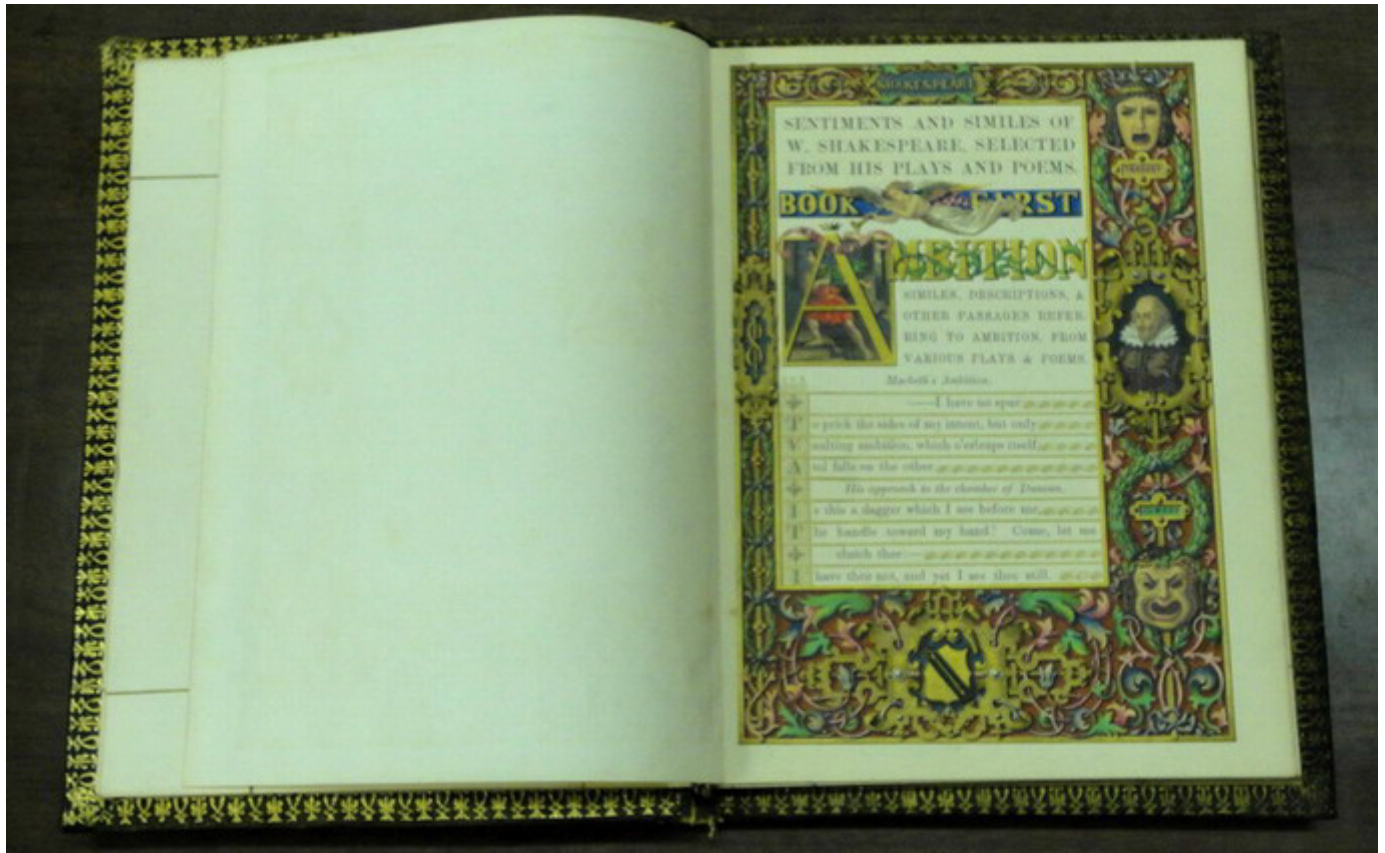 SHAKESPEARE
SENTIMENTS AND SIMILES OF
W. SHAKESPEARE, SELECTED
FROM HIS PLAYS AND POEMS.
BOOK THE FIRST
AMBITION
SIMILES, DESCRIPTIONS, &
OTHER PASSAGES REFER-
RING TO AMBITION, FROM
VARIOUS PLAYS & POEMS.
Macbeth's Ambition.
——I have no spur
To prick the sides of my intent, but only
Vaulting ambition, which o'erleaps itself,
And falls on the other
His approach to the chamber of Duncan.
Is this a dagger which I see before me,
The handle toward my hand? Come, let me
clutch thee:—
I have thee not, and yet I see thee still.
TRAGEDY
COMEDY